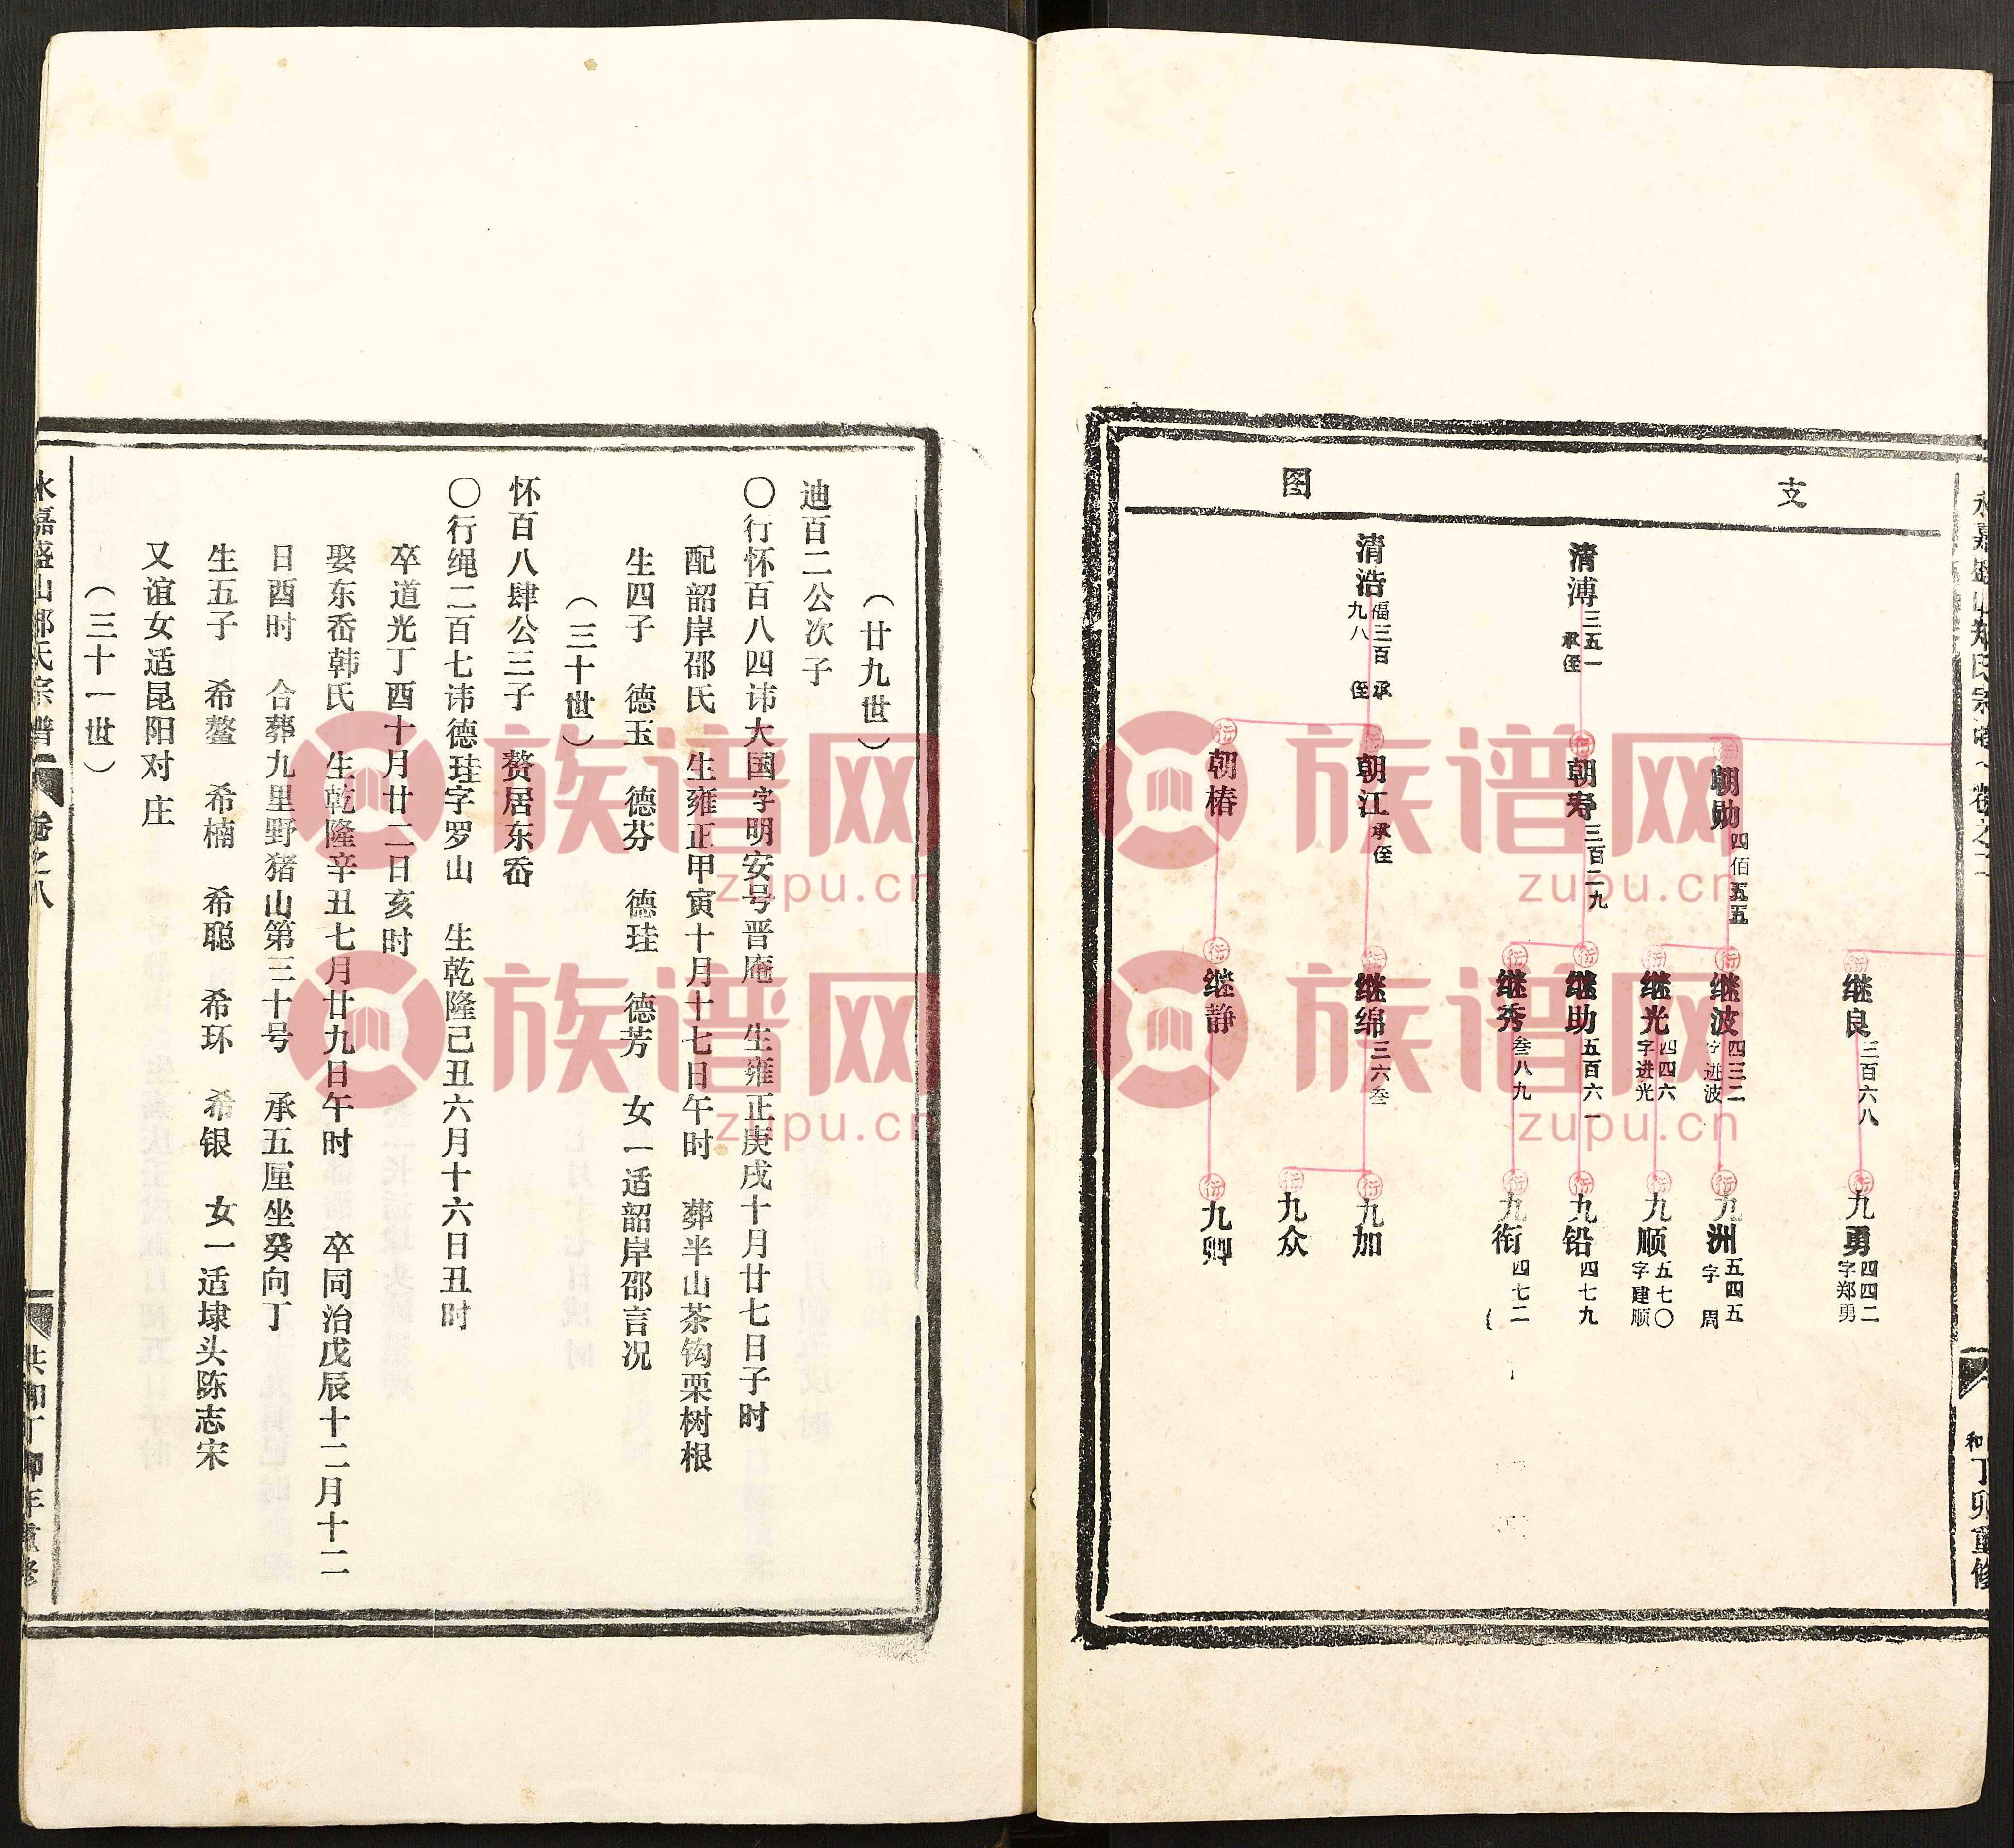 支
图
继良 三百六八
九勇 四四二 字郑勇
朝勋 四佰五五
继波 四三二 字进波
九洲 五四五 字周
继光 四四六 字进光
九顺 五七〇 字建顺
清溥 三五一 承侄
朝寿 三百二九
继助 五百六一
九铅 四七九
继秀 叁八九
九衔 四七二
清浩 福三百九八 承侄
朝江 承侄
继绵 三六叁
九加
九众
朝椿
继静
九卿
丁卯重修
（廿九世）
迪百二公次子
〇行怀百八四讳大国字明安号晋庵 生雍正庚戌十月廿七日子时
配韶岸邵氏 生雍正甲寅十月十七日午时 葬半山茶钩栗树根
生四子 德玉 德芬 德珪 德芳 女一适韶岸邵言况
（三十世）
怀百八肆公三子 赘居东岙
〇行绳二百七讳德珪字罗山 生乾隆己丑六月十六日丑时
卒道光丁酉十月廿二日亥时
娶东岙韩氏 生乾隆辛丑七月廿九日午时 卒同治戊辰十二月十二
日酉时 合葬九里野猪山第三十号 承五厘坐癸向丁
生五子 希鳌 希楠 希聪 希环 希银 女一适埭头陈志宋
又谊女适昆阳对庄
（三十一世）
卷之八
族谱网
zupu.cn
族谱网
zupu.cn
族谱网
zupu.cn
族谱网
zupu.cn